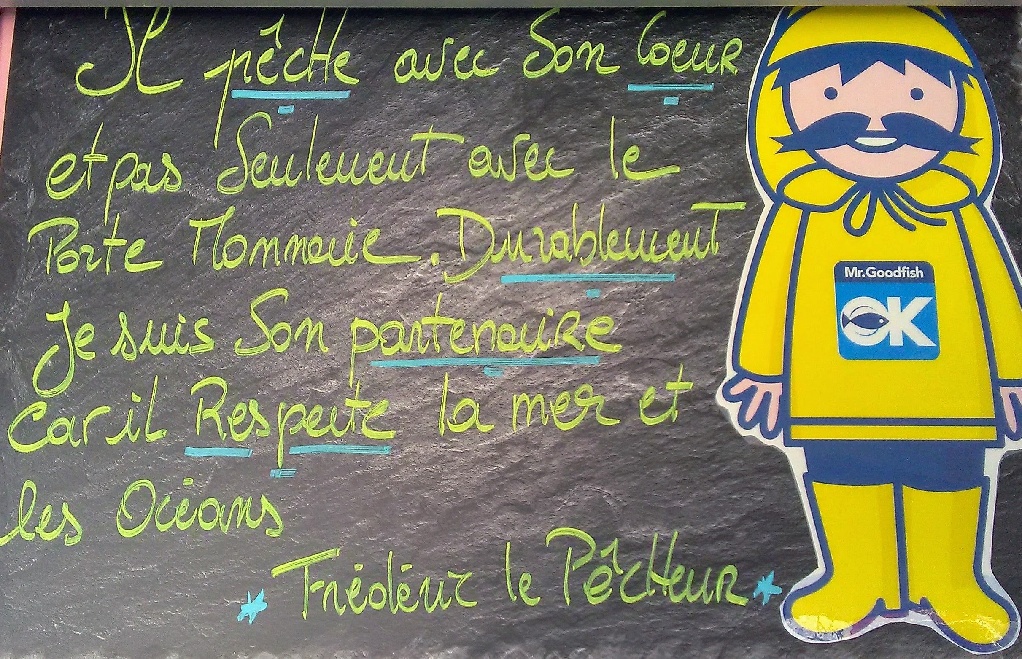 Il pêche avec Son Coeur
et pas Seulement avec le
Porte Monnaie. Durablement
Je suis Son partenaire
car il Respecte la mer et
les Océans
Frédéric le PêcHeuR
Mr.Goodfish
OK